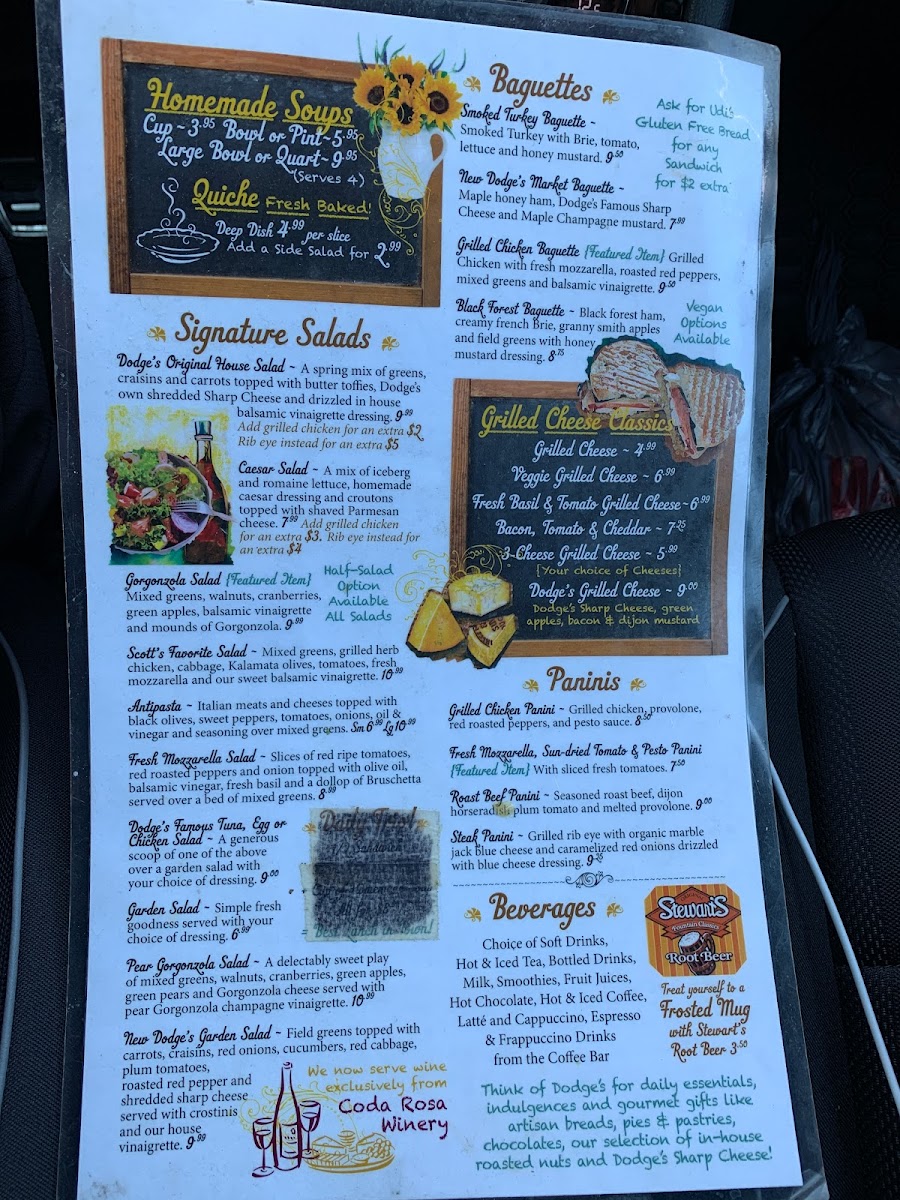 Homemade Soups
Cup ~ 3.95 Bowl or Pint ~ 5.95
Large Bowl or Quart ~ 9.95
(Serves 4)
Quiche Fresh Baked!
Deep Dish 4.99 per slice
Add a Side Salad for 2.99
Signature Salads
Dodge's Original House Salad ~ A spring mix of greens,
craisins and carrots topped with butter toffies, Dodge's
own shredded Sharp Cheese and drizzled in house
balsamic vinaigrette dressing. 9.99
Add grilled chicken for an extra $2
Rib eye instead for an extra $5
Caesar Salad ~ A mix of iceberg
and romaine lettuce, homemade
caesar dressing and croutons
topped with shaved Parmesan
cheese. 7.99 Add grilled chicken
for an extra $3. Rib eye instead for
an extra $4
Gorgonzola Salad {Featured Item}
Mixed greens, walnuts, cranberries,
green apples, balsamic vinaigrette
and mounds of Gorgonzola. 9.99
Half-Salad
Option
Available
All Salads
Scott's Favorite Salad ~ Mixed greens, grilled herb
chicken, cabbage, Kalamata olives, tomatoes, fresh
mozzarella and our sweet balsamic vinaigrette. 10.99
Antipasta ~ Italian meats and cheeses topped with
black olives, sweet peppers, tomatoes, onions, oil &
vinegar and seasoning over mixed greens. Sm 6.99 Lg 10.99
Fresh Mozzarella Salad ~ Slices of red ripe tomatoes,
red roasted peppers and onion topped with olive oil,
balsamic vinegar, fresh basil and a dollop of Bruschetta
served over a bed of mixed greens. 8.99
Dodge's Famous Tuna, Egg or
Chicken Salad ~ A generous
scoop of one of the above
over a garden salad with
your choice of dressing. 9.00
Daily
= Best Lunch in Town!
Garden Salad ~ Simple fresh
goodness served with your
choice of dressing. 6.99
Pear Gorgonzola Salad ~ A delectably sweet play
of mixed greens, walnuts, cranberries, green apples,
green pears and Gorgonzola cheese served with
pear Gorgonzola champagne vinaigrette. 10.99
New Dodge's Garden Salad ~ Field greens topped with
carrots, craisins, red onions, cucumbers, red cabbage,
plum tomatoes,
roasted red pepper and
shredded sharp cheese
served with crostinis
and our house
vinaigrette. 9.99
We now serve wine
exclusively from
Coda Rosa
Winery
Baguettes
Smoked Turkey Baguette ~
Smoked Turkey with Brie, tomato,
lettuce and honey mustard. 9.50
Ask for Udi's
Gluten Free Bread
for any
Sandwich
for $2 extra
New Dodge's Market Baguette ~
Maple honey ham, Dodge's Famous Sharp
Cheese and Maple Champagne mustard. 7.99
Grilled Chicken Baguette {Featured Item} Grilled
Chicken with fresh mozzarella, roasted red peppers,
mixed greens and balsamic vinaigrette. 9.50
Black Forest Baguette ~ Black forest ham,
creamy french Brie, granny smith apples
and field greens with honey
mustard dressing. 8.75
Vegan
Options
Available
Grilled Cheese Classics
Grilled Cheese ~ 4.99
Veggie Grilled Cheese ~ 6.99
Fresh Basil & Tomato Grilled Cheese ~ 6.99
Bacon, Tomato & Cheddar ~ 7.25
3-Cheese Grilled Cheese ~ 5.99
{Your choice of Cheeses}
Dodge's Grilled Cheese ~ 9.00
Dodge's Sharp Cheese, green
apples, bacon & dijon mustard
Paninis
Grilled Chicken Panini ~ Grilled chicken, provolone,
red roasted peppers, and pesto sauce. 8.50
Fresh Mozzarella, Sun-dried Tomato & Pesto Panini
{Featured Item} With sliced fresh tomatoes. 7.50
Roast Beef Panini ~ Seasoned roast beef, dijon
horseradish plum tomato and melted provolone. 9.00
Steak Panini ~ Grilled rib eye with organic marble
jack blue cheese and caramelized red onions drizzled
with blue cheese dressing. 9.25
Beverages
Choice of Soft Drinks,
Hot & Iced Tea, Bottled Drinks,
Milk, Smoothies, Fruit Juices,
Hot Chocolate, Hot & Iced Coffee,
Latté and Cappuccino, Espresso
& Frappuccino Drinks
from the Coffee Bar
Stewart's
Fountain Classics
Root Beer
Treat yourself to a
Frosted Mug
with Stewart's
Root Beer 3.50
Think of Dodge's for daily essentials,
indulgences and gourmet gifts like
artisan breads, pies & pastries,
chocolates, our selection of in-house
roasted nuts and Dodge's Sharp Cheese!